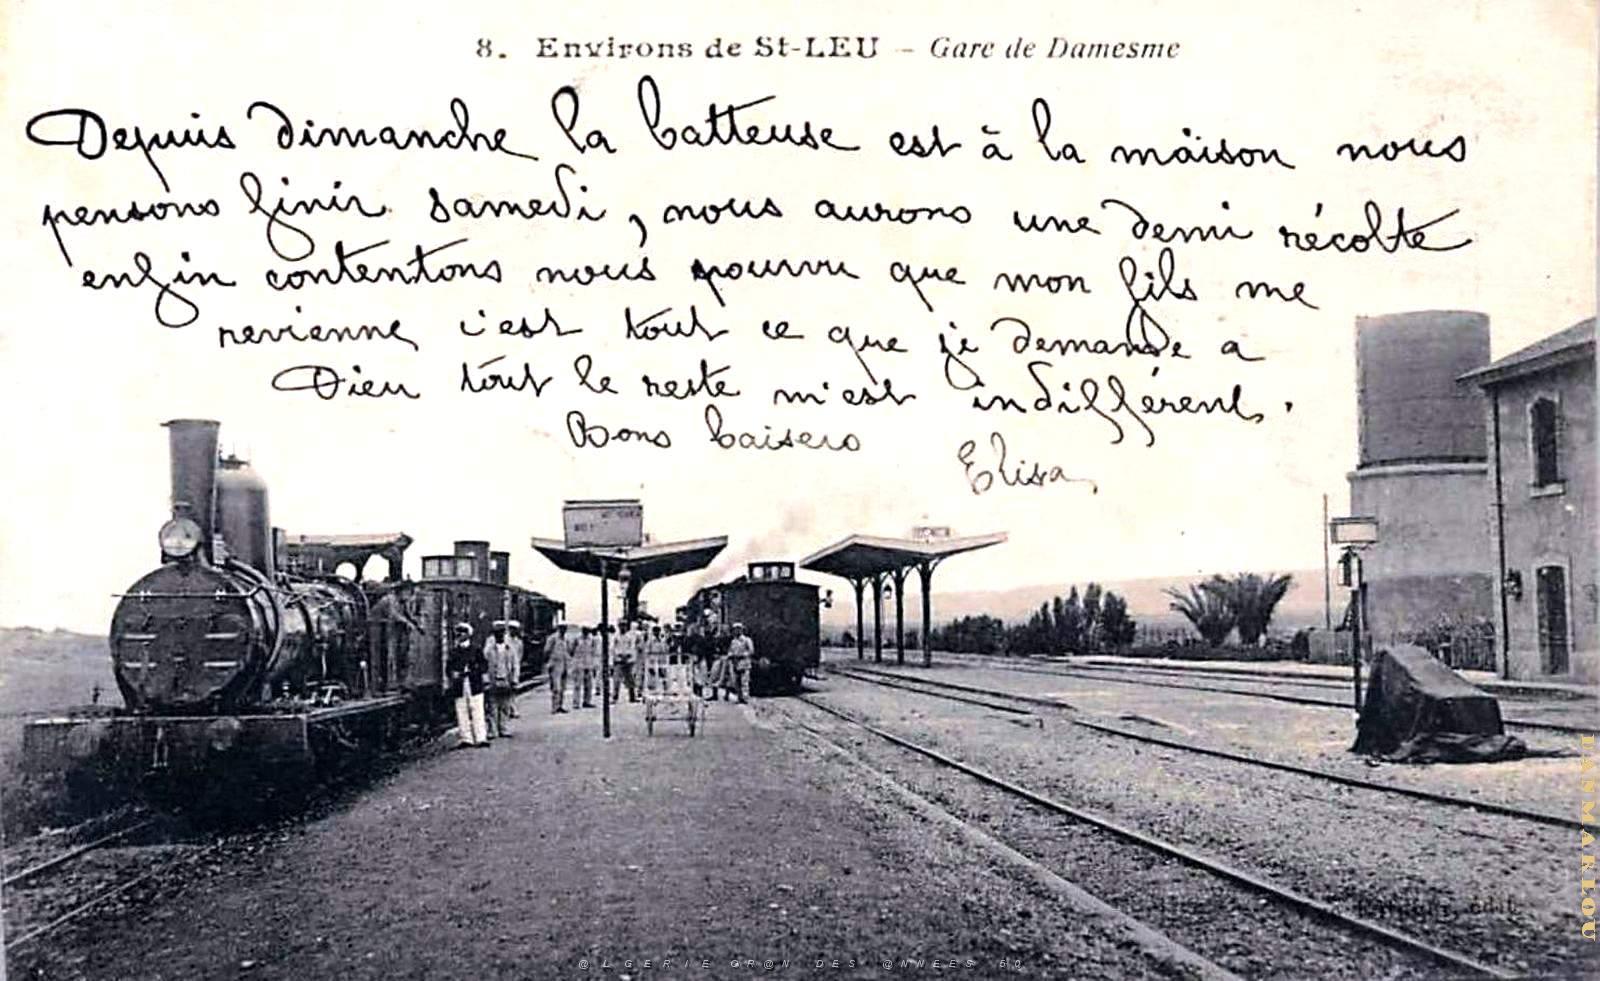 8. Environs de St-LEU – Gare de Damesme
Depuis dimanche la batteuse est à la maison nous
pensons finir samedi, nous aurons une demi récolte
enfin contentons nous pourvu que mon fils me
revienne c'est tout ce que je demande a
Dieu tout le reste m'est indifférent.
Bons baisers
Elisa
édit.
DANMARLOU
@LGERIE OR@N DES @NNEES 50